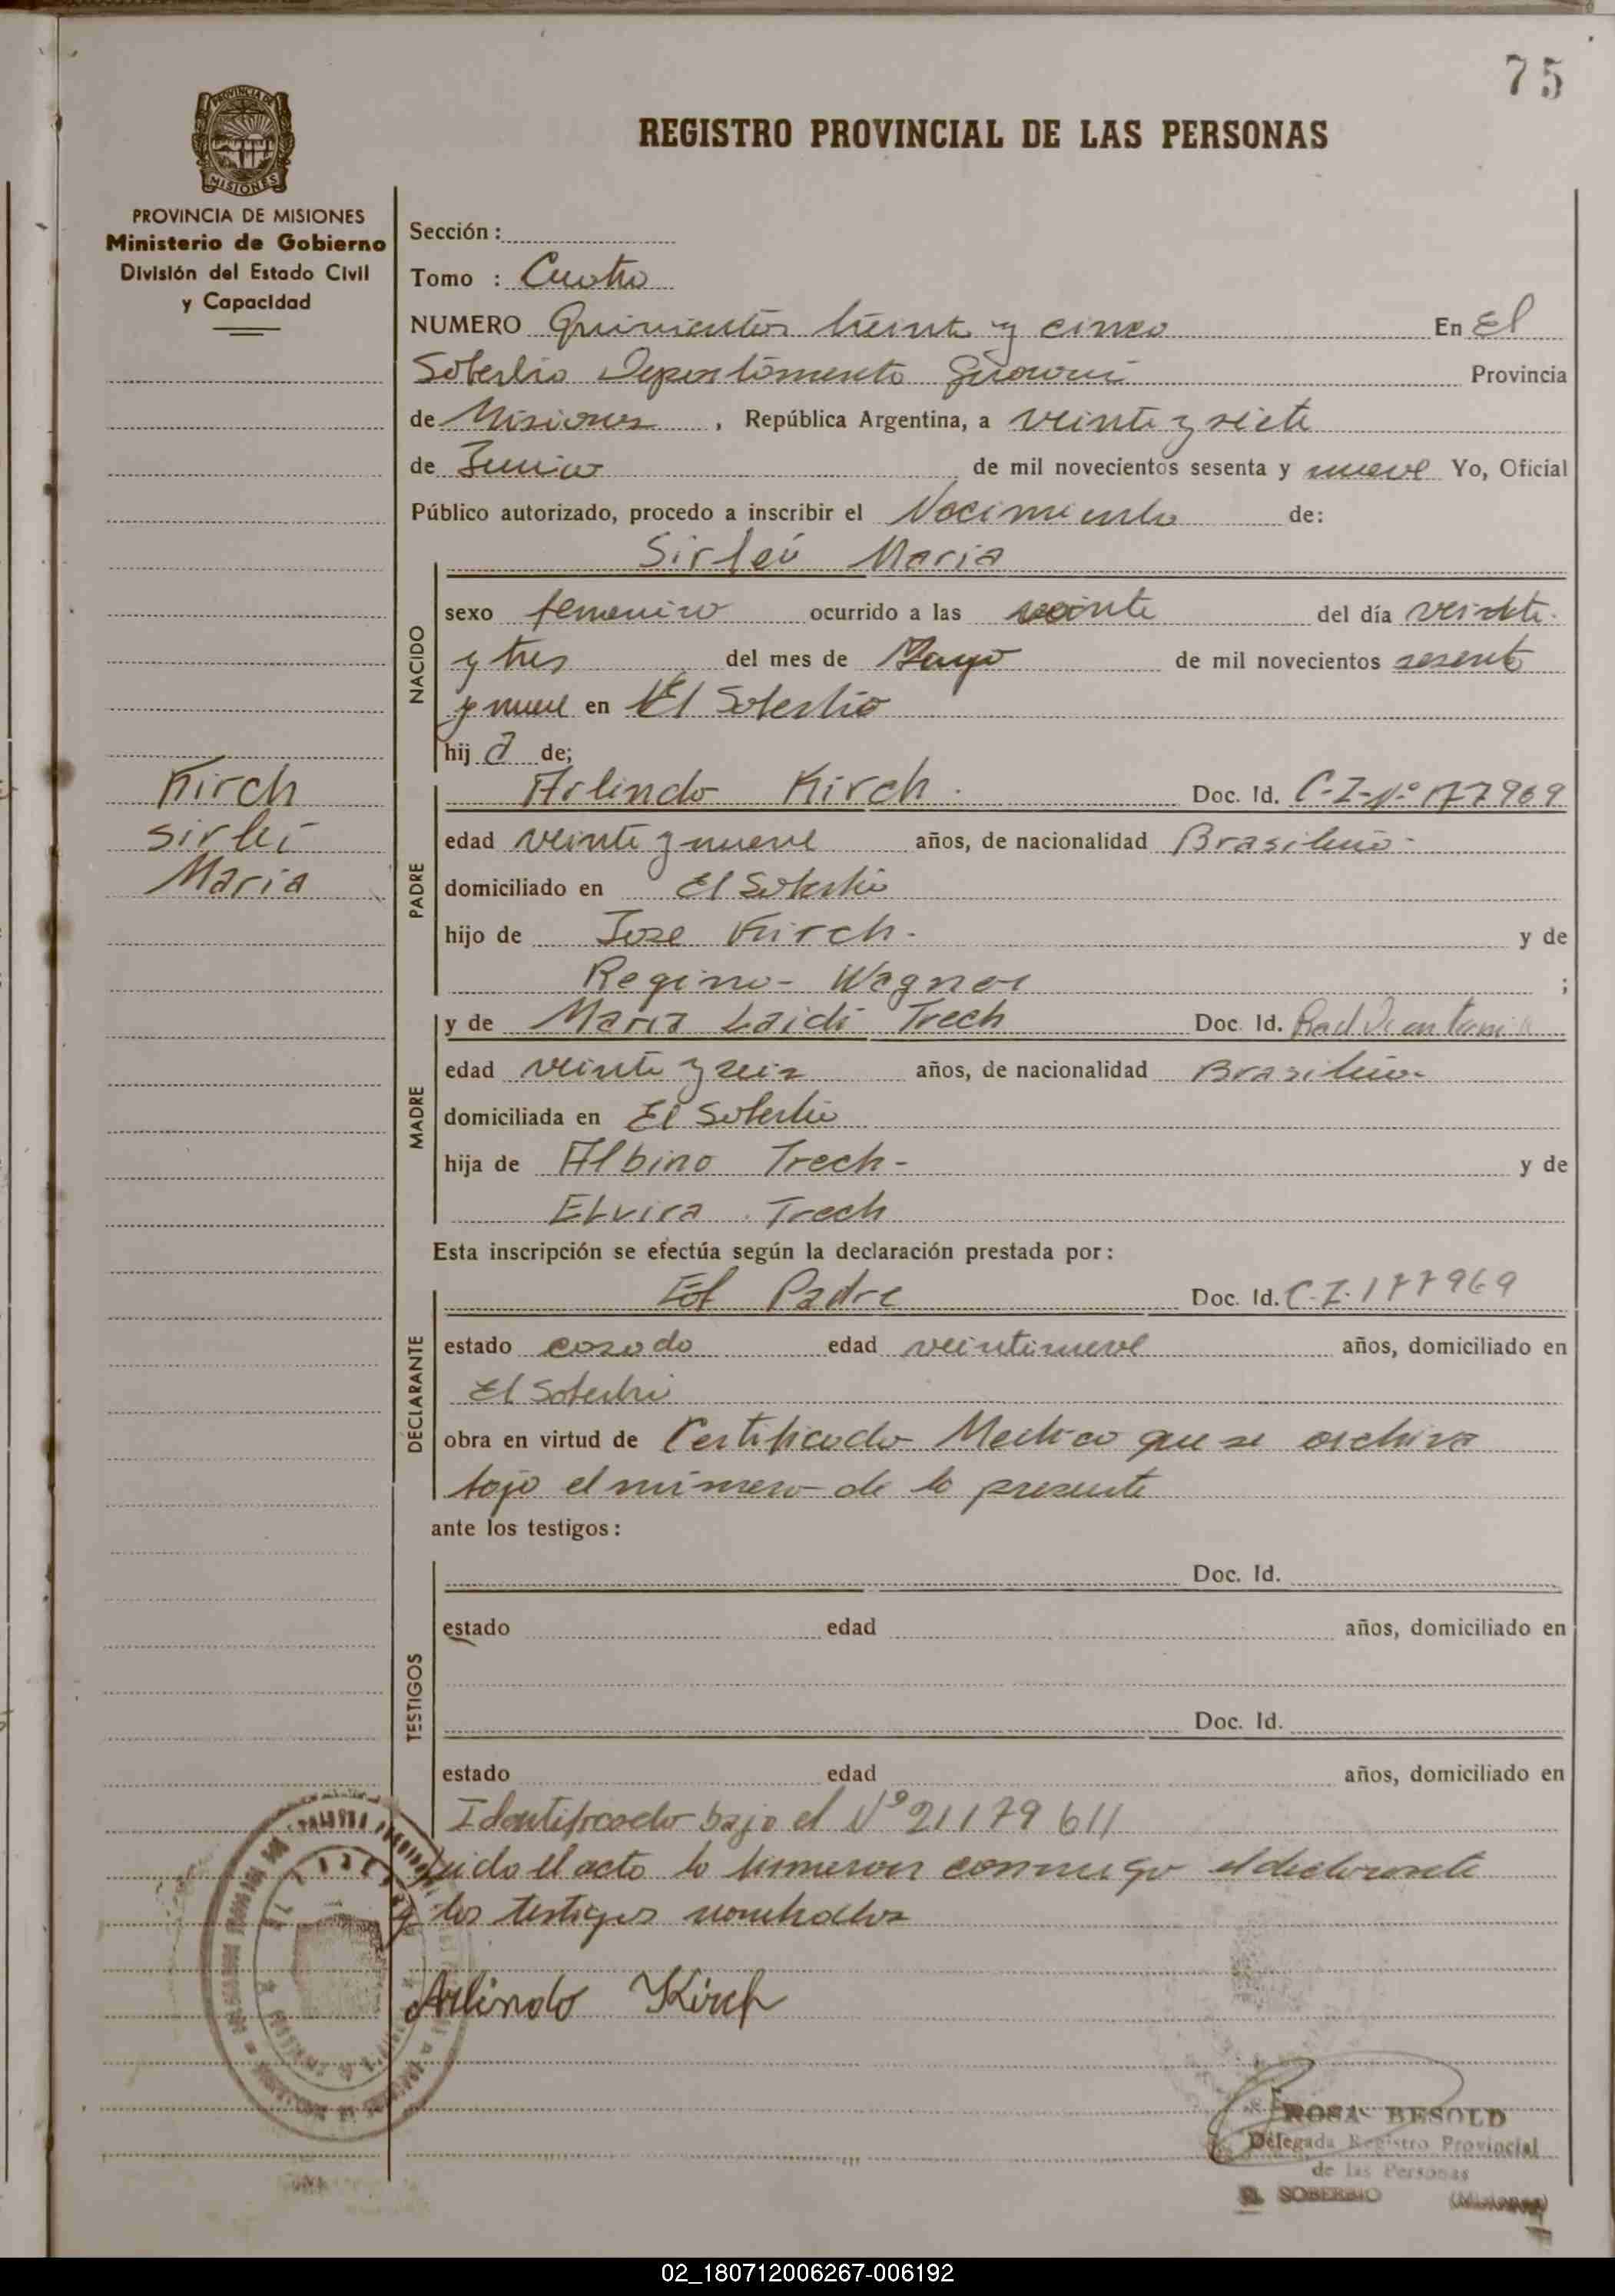 75
REGISTRO PROVINCIAL DE LAS PERSONAS
PROVINCIA DE MISIONES
MISIONES
PROVINCIA DE MISIONES
Ministerio de Gobierno
División del Estado Civil
y Capacidad
Sección :
Tomo : Cuatro
NUMERO Quinientos treinta y cinco En El
Soberbio Departamento Guarani Provincia
de Misiones , República Argentina, a veinte y siete
de Junio de mil novecientos sesenta y nueve Yo, Oficial
Público autorizado, procedo a inscribir el Nacimiento de:
Sirlei Maria
NACIDO
sexo femenino ocurrido a las veinte del día veinte
y tres del mes de Mayo de mil novecientos sesenta
y nueve en El Soberbio
hij a de;
Kirch
Sirlei
Maria
PADRE
Arlindo Kirch. Doc. Id. C-I-Nº 177969
edad veinte y nueve años, de nacionalidad Brasileño-
domiciliado en El Soberbio
hijo de Jose Kirch. y de
Regina- Wagner ;
MADRE
y de Maria Laidi Trech Doc. Id.
edad veinte y seis años, de nacionalidad Brasileña
domiciliada en El Soberbio
hija de Albino Trech- y de
Elvira Trech
Esta inscripción se efectúa según la declaración prestada por:
DECLARANTE
El Padre Doc. Id. C.I. 177969
estado casado edad veintinueve años, domiciliado en
El Soberbio
obra en virtud de Certificado Medico que se archiva
bajo el número de la presente
ante los testigos:
TESTIGOS
Doc. Id.
estado edad años, domiciliado en
Doc. Id.
estado edad años, domiciliado en
Identificado bajo el Nº 21179611
Leida el acta la firmaron conmigo el declarante
y los testigos nombrados
Arlindo Kirch
ROSA BESOLD
Delegada Registro Provincial
de las Personas
EL SOBERBIO (Misiones)
02_180712006267-006192